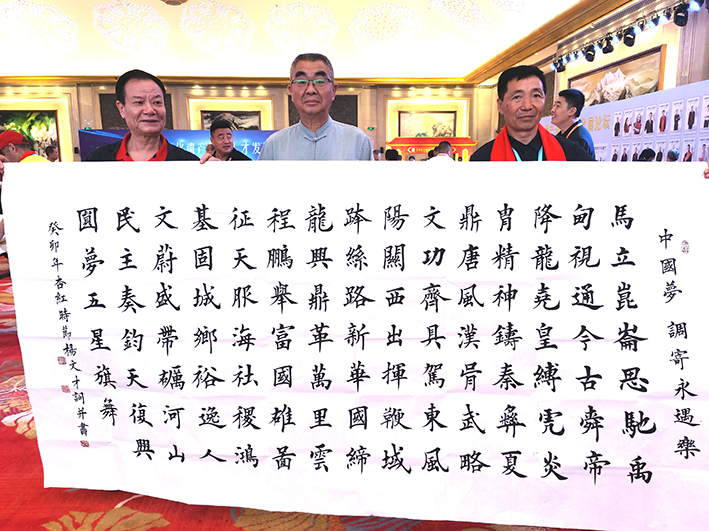 中國夢 調寄永遇樂
馬立崑崙思馳禹
甸視通今古舜帝
降龍堯皇縛虎炎
冑精神鑄秦彝夏
鼎唐風漢骨武略
文功齊具駕東風
陽關西出揮鞭城
跨絲路新華國締
龍興鼎革萬里雲
程鵬舉富國雄啚
征天服海社稷鴻
基固城鄉裕逸人
文蔚盛帶礪河山
民主奏鈞天復興
圓夢五星旗舞
癸卯年杏紅時節楊文才詞并書
遗产
才发
论坛